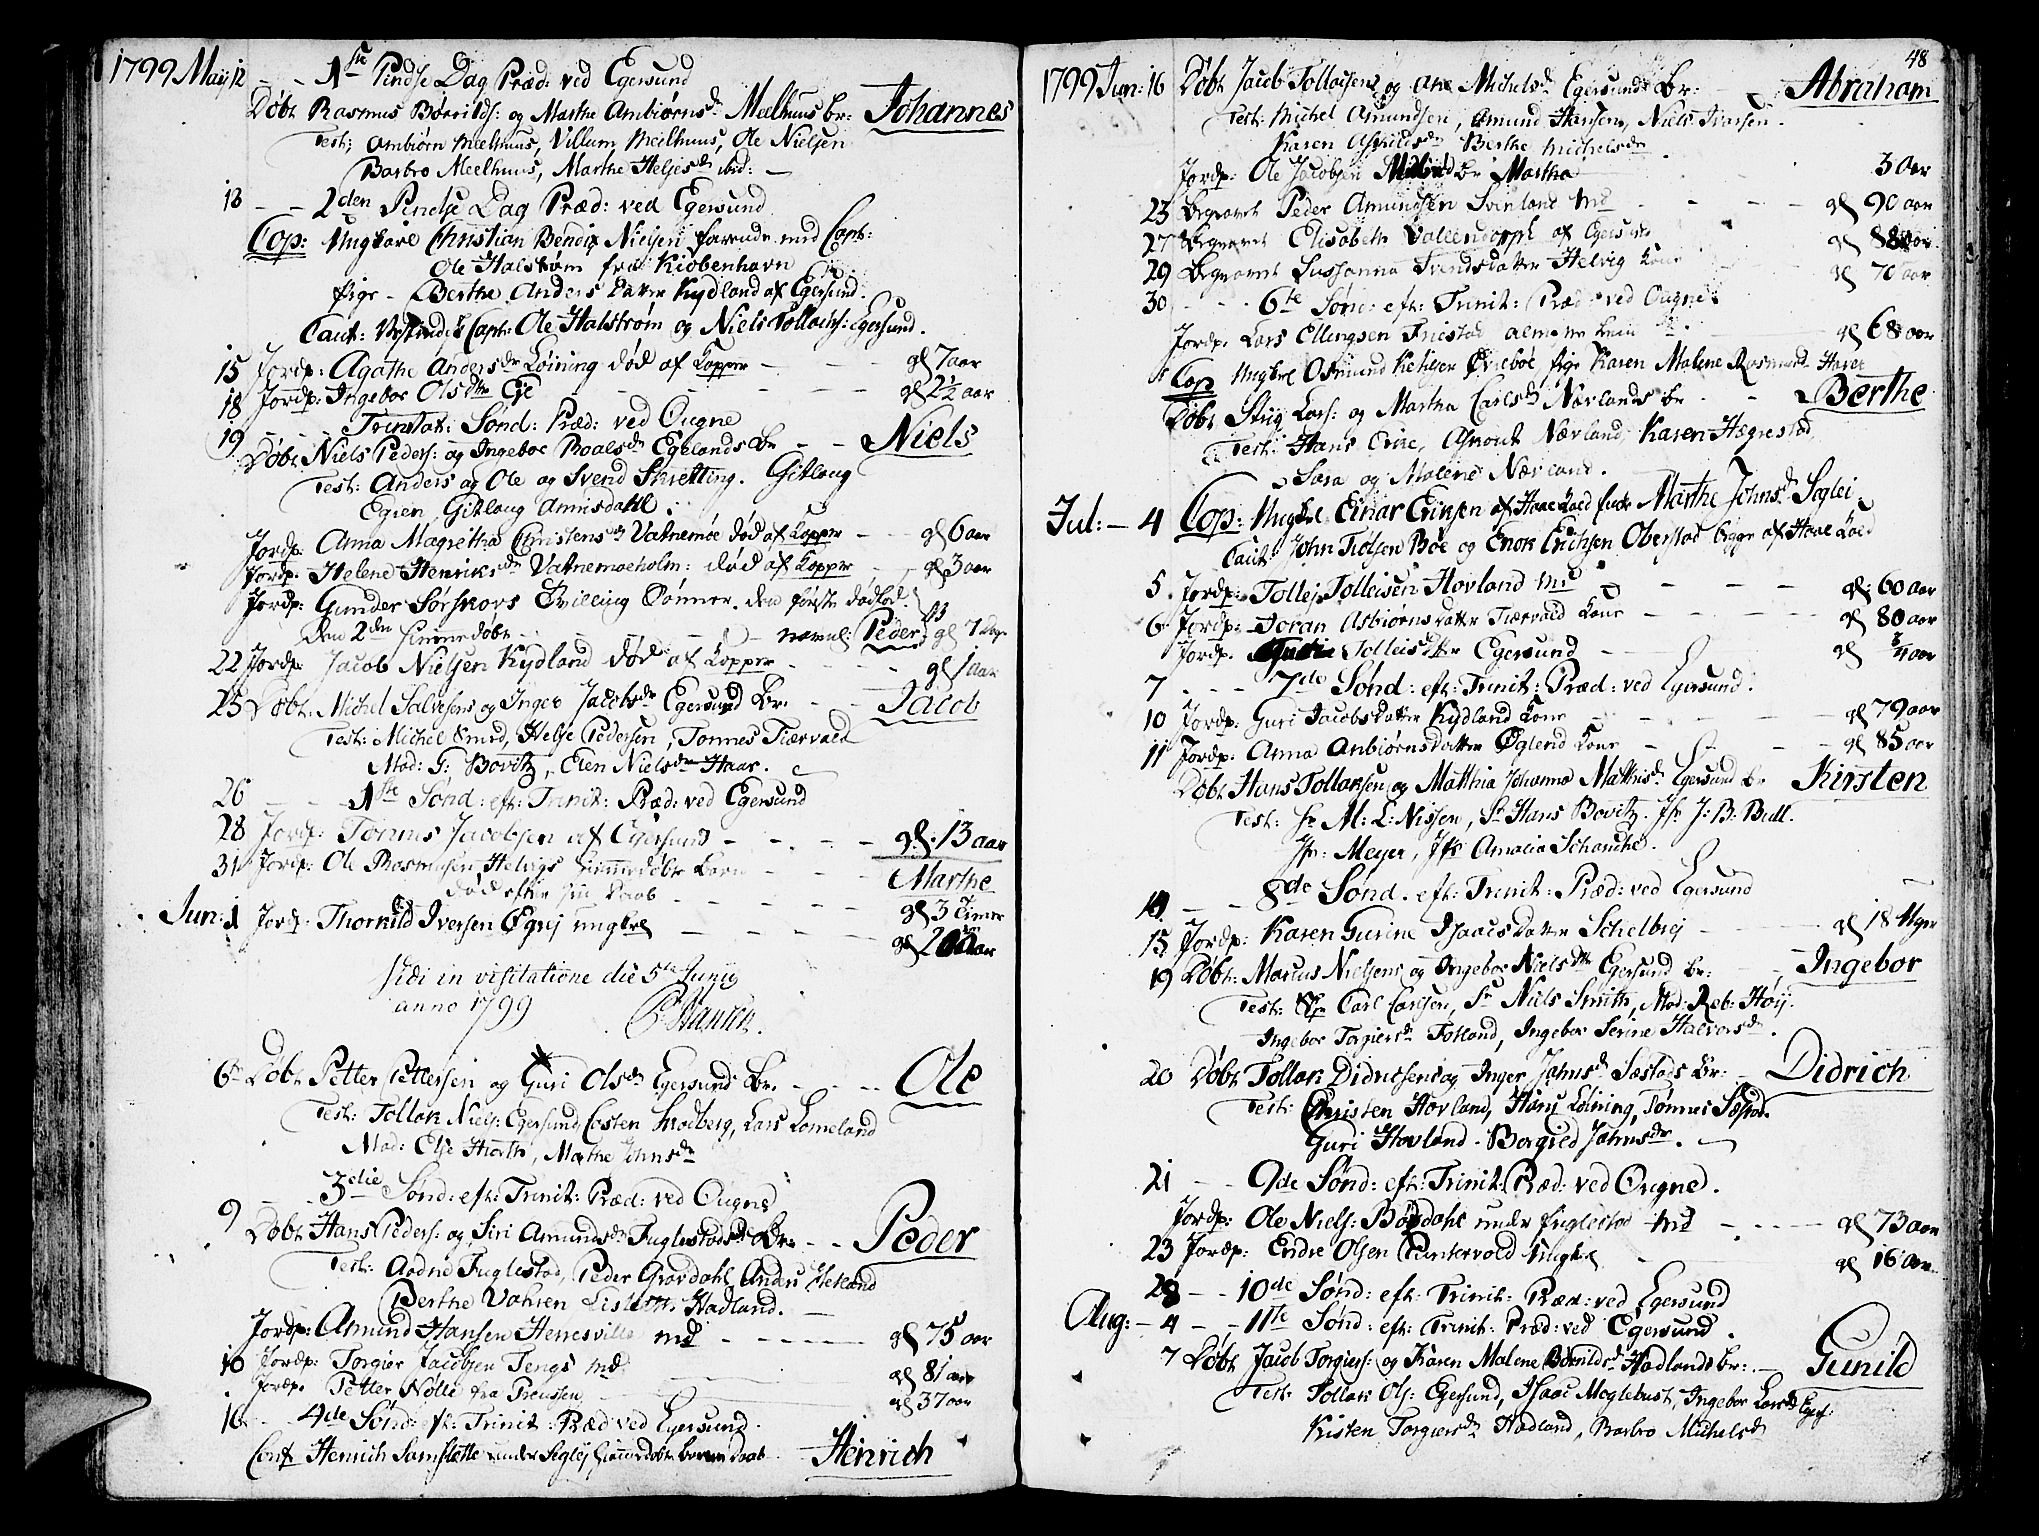 1799 Maij 12 - - 1ste Pindse Dag Præd: ved Egersund
Døbt Rasmus Børrilds: og Marthe Ambiørnsdr Meelhuus br: Johannes
Test; Ambiørn Meelhuus, Villum Meelhuus, Ole Nielsen
Barbro Meelhuus, Marthe Heljesdr ibid: -
13 - - 2den Pindse Dag Præd: ved Egersund
Cop: Ungkarl Christian Bendix Nielsen farende med Capt:
Ole Halstrøm fra Kiøbenhavn
Pige - Berthe Anders Datter Kydland af Egersund.
Caut: Capt: Ole Halstrøm og Niels Tollachs: Egersund.
15 Jordp: Agathe Andersdr Løining død af Kopper - - - gl 7 aar
18 Jordp: Ingebor Olsdtr Eie - - - gl 2½ aar
19 - - - Trinitat: Sønd: Præd: ved Ougne
Døbt Niels Peders: og Ingebor Roalsdr Egelands br - - Niels
Test: Anders og Ole og Svend Skretting. Gitlaug
Egien Gitlaug Amnsdahl.
Jordp: Anna Magretha Christensdr Vatnemoe død af Kopper - - - gl 6 aar
Jordp: Helene Henriksdr Vatnemoeholm: død af Kopper - - gl 3 aar
Jordp: Gunder Sørskovs Tvilling Sønner. den første dødfød.
Den 2den hiemmedøbt - - - navnl: Peder gl 7 Dage
22 Jordp: Jacob Nielsen Kydland død af Kopper - - - gl 1 aar
25 Døbt: Michel Salvesens og Inger Jacobsdr Egersund br: - - Jacob
Test: Michel Smed, Helje Pedersen, Tonnes Tiærvald
Mad: G: Bovitz, Elen Nielsdr Haar.
26 - - - 1ste Sønd: eft: Trinit: Præd: ved Egersund
28 Jordp: Tønnes Jacobsen af Egersund - - - - gl: 13 aar
31 Jordp: Ole Rasmusen Helvigs hiemmedøbte Barn - - - Marthe
død efter sin Daab - - - - gl 3 Timer
Jun: 1 Jordp: Thorkild Iversen Øgrej ungkrl - - - gl 20 aar
Vidi in visitatione die 5te Junij
anno 1799 P. Hansen.
6te Døbt Petter Pettersen og Guri Olsdr Egersund br. - - - Ole
Test: Tollak Niels: Egersund Costen Skodberg, Lars Lomeland
Mad: Else Hiorth, Marthe Johnsdr
3die Sønd: eft: Trinit: Præd: ved Ougne
9 Døbt Hans Peders: og Siri Amundsdr Fuglestads Br: - - Peder
Test: Aadne Fuglestad, Peder Grøvdahl, Anders Hetland
Berthe Lisbeth Hadland. -
Jordp: Amund Hansen Herresville md - - - - gl 75 aar
10 Jordp: Torgier Jacobsen Tengs md. gl 81 aar
Jordp: Petter Nolle fra Preussen - - gl 37 aar
16 - - 4de Sønd: eft: Trinit: Præd: ved Egersund.
Conf Henrich Samslette under Seglej hiemmedøbte barns Daab - Heinrich
48
1799 Jun: 16 Døbt Jacob Tollaesens og Ane Michelsdr Egersunds Br: - Abraham
Test: Michel Amundsen, Amund Hansen, Niels Ivarsen.
Karen Asvildsdr Berthe Michelsdr
Jordp: Ole Jacobsen br Martha 3 Aar
23 Begravet Peder Amundsen Svinland md - - - gl 90 aar
27 Begravet Elisabeth Vallendorph af Egersund gl 88 aar
29 Begravet Sussanna Svendsdatter Helvig Kone - - gl 70 aar
30 - - - 6te Sønd: eft: Trinit: Præd: ved Ougne:
Jordp: Lars Ellingsen Friestad - - - gl 68 aar
Cop Ungkrl Osmund Ketilsen Øvreboe Pige Karen Malene Rasmusd Haar
Døbt Stug Lars: og Martha Carlsdr Nærlands br - - Berthe
Test: Hans Eine, Asvout Nærland, Karen Hægrestad
Sara og Malene Nærland.
Jul: - 4 Cop: Ungkrl Einar Erixsen af Haae Kald Marthe Johnsd Seglei.
Caut John Tiølsen Bøe og Enok Erichsen Oberstad begge af Haae Kald
5 Jordp: Tollef Tolleisen Hovland md - - - - gl: 60 aar
6 Jordp: Joran Asbiørnsdatter Tiærvald Kone - - - - gl 80 aar
Jordp: Tolleisdtter Egersund - - - gl ¾ aar
7 - - - 7de Sønd: eft: Trinit: Præd: ved Egersund.
10 Jordp: Guri Jacobsdatter Kydland Kone - - - - gl 79 aar
11 Jordp: Anna Anbiørnsdatter Øglend Kone - - - - gl 85 aar
Døbt Hans Tollaksen og Matthia Johanna Mathisdr Egersund br Kirsten
Test: Hr M: L: Nissen, Sr Hans Bovitz. Jfr J: B: Bull.
Jfr: Meyer, Jfr Amalia Schanche.
14 - - 8de Sønd. eft: Trinit: Præd: ved Egersund
15 Jordp: Karen Gurine Isaacs Datter Schelbrej - - - gl 18 Uger
19 Døbt: Marcus Nielsens og Ingebor Nielsdtr Egersund br: - - Ingebor
Test: Carl Carlsen, Sr Niels Smith, Mad: Reb: Høij.
Ingebor Torgiersdr Totland, Ingebor Serine Halvorsdr.
20 Døbt Tollak Didrichsens og Inger Johnsdr Sæstads Br: - Didrich
Test: Christen Hovland, Hans Løining, Tønnes Sæstad.
Guri Hovland. Borgred Johnsdr. -
21 - - 9de Sønd: eft: Trinit: Præd: ved Ougne.
Jordp: Ole Niels: under Fuglestad md - - - - gl 73 aar
23 Jordp: Endre Olsen Puntervold Ungkrl - - gl 16 aar.
28 - - 10de Sønd: eft: Trinit: Præd: ved Egersund
Aug: - 4 - - 11te Sønd: eft: Trinit: Præd: ved Egersund.
7 Døbt Jacob Torgiers: og Karen Malene Børrildsdr Hadlands br: - Gunild
Test: Tollak Ols: Egersund, Isaac Moglebust, Ingebor Larsdr Egers:
Kisten Torgiersdr Hadland, Barbro Michelsdr